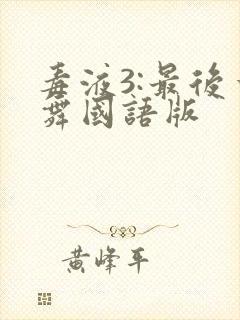 毒液3:最後一
舞國語版
黃峰平